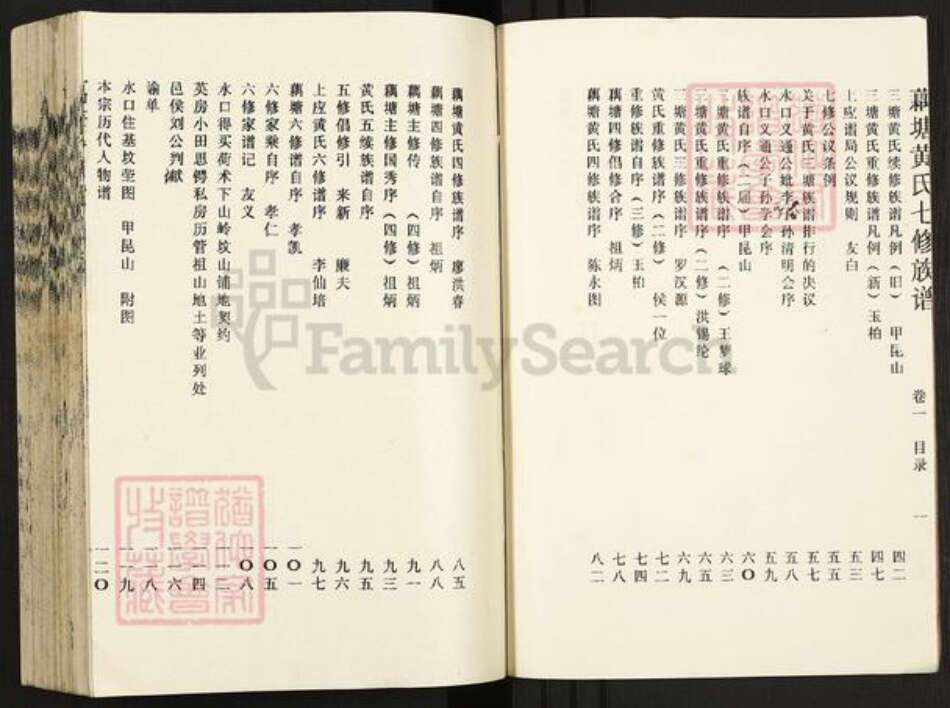 藕塘黄氏七修族谱 卷一 目录 一
三塘黄氏续修族谱凡例（旧） 甲昆山 四二
三塘黄氏重修族谱凡例（新）玉柏 四七
上应谱局公议规则 友白 五三
七修公议条例 五五
关于黄氏三塘族谱排行的决议 五七
水口义通公妣李 孙清明会序 五八
水口义通公子孙学会序 五九
族谱自序（二届）甲昆山 六〇
三塘黄氏重修族谱序（二修）王 球 六三
三塘黄氏重修族谱序（二修）洪锡纶 六五
三塘黄氏三修族谱序 罗汉源 六九
黄氏重修族谱序（二修） 侯一位 七二
重修族谱自序（三修）玉柏 七四
藕塘四修倡修合序 祖炳 七八
藕塘黄氏四修族谱序 陈永图 八二
藕塘黄氏四修族谱序 廖洪春 八五
藕塘四修族谱自序 祖炳 八八
藕塘主修传 （四修）祖炳 九一
藕塘主修国秀序（四修）祖炳 九三
黄氏五续族谱自序 九五
五修倡修引 来新 廉夫 九六
上应黄氏六修谱序 李仙培 九七
藕塘六修谱自序 孝凯 一〇一
六修家乘自序 孝仁 一〇五
六修家谱记 友义 一〇八
水口得买荷术下山岭坟山铺地契约 一一二
英房小田恩锷私房历管祖山地土等业列处 一一四
邑侯刘公判献 一一六
谕单 一一八
水口住基坟茔图 甲昆山 附图 一一九
本宗历代人物谱 一二〇
FamilySearch